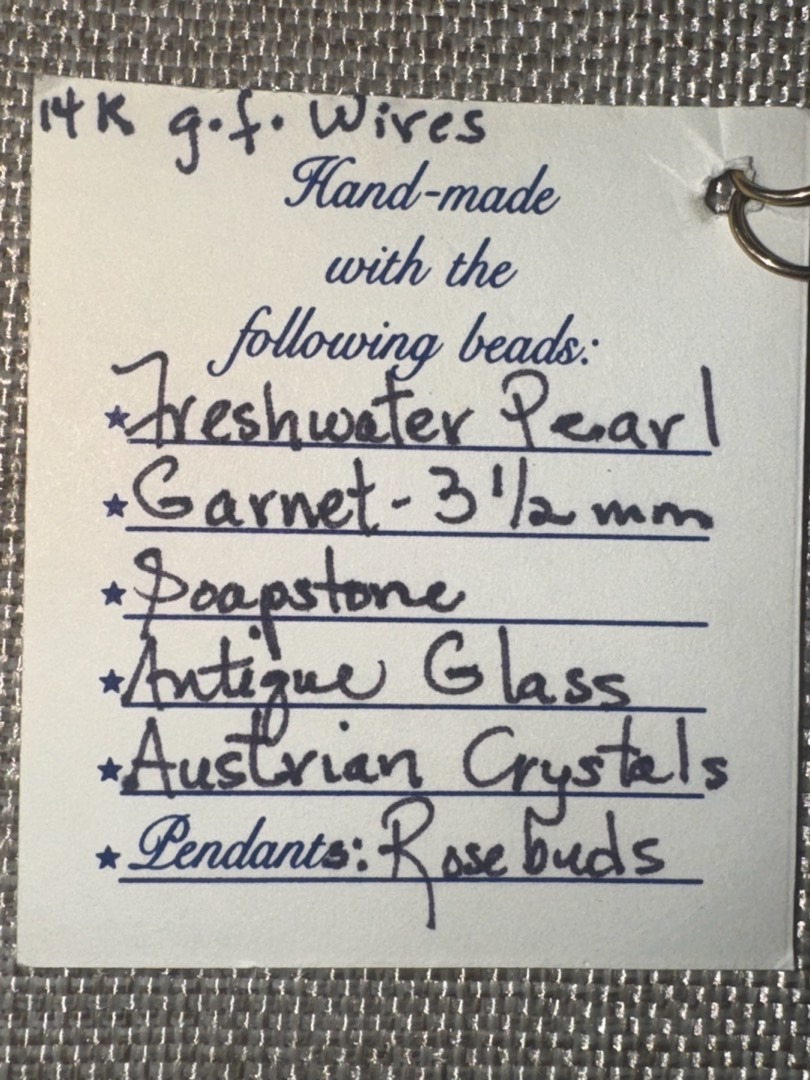 14K g.f. Wires
Hand-made
with the
following beads:
★ Freshwater Pearl
★ Garnet - 3 1/2 mm
★ Soapstone
★ Antique Glass
★ Austrian Crystals
★ Pendants: Rosebuds